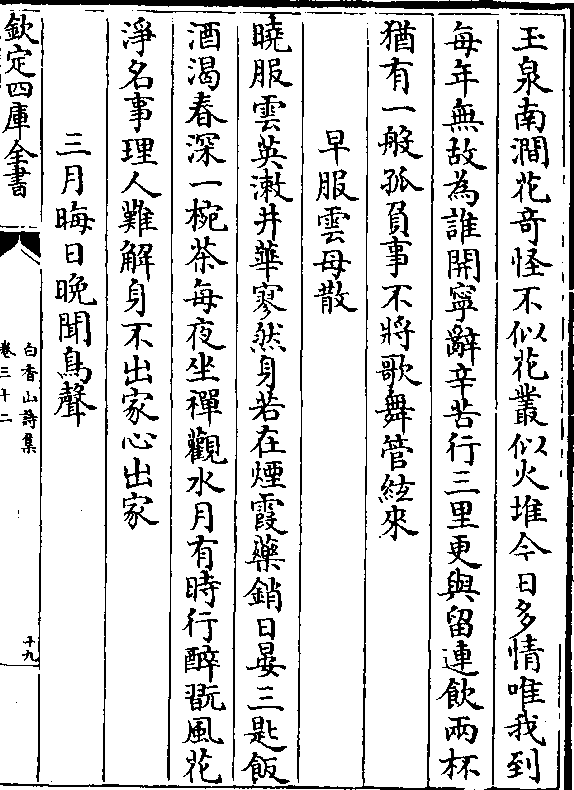 玉泉南澗花奇怪不似花叢似火堆今日多情唯我到
每年無故為誰開寧辭辛苦行三里更與留連飲兩杯
猶有一般孤負事不將歌舞管絃來
早服雲母散
曉服雲英漱井華寥然身若在煙霞藥銷日晏三匙飯
酒渴春深一椀茶每夜坐禪觀水月有時行醉翫風花
淨名事理人難解身不出家心出家
三月晦日晚聞鳥聲
欽定四庫全書
白香山詩集
卷三十二
十九